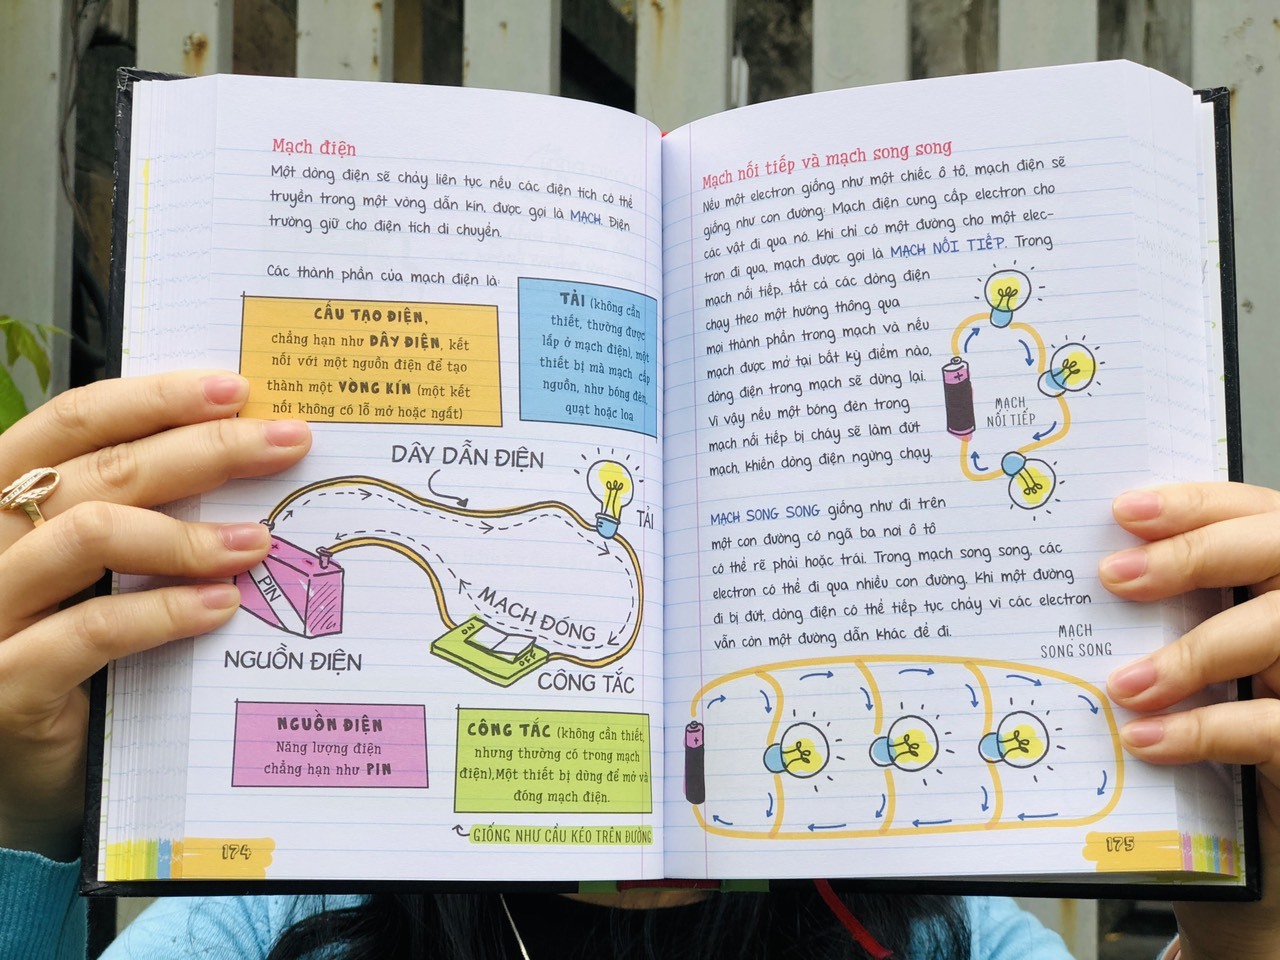 Mạch điện
Một dòng điện sẽ chảy liên tục nếu các điện tích có thể
truyền trong một vòng dẫn kín, được gọi là MẠCH. Điện
trường giữ cho điện tích di chuyển.
Các thành phần của mạch điện là:
CẤU TẠO ĐIỆN,
chẳng hạn như DÂY ĐIỆN, kết
nối với một nguồn điện để tạo
thành một VÒNG KÍN (một kết
nối không có lỗ mở hoặc ngắt)
TẢI (không cần
thiết, thường được
lắp ở mạch điện), một
thiết bị mà mạch cấp
nguồn, như bóng đèn,
quạt hoặc loa
DÂY DẪN ĐIỆN
TẢI
PIN
MẠCH ĐÓNG
ON
OFF
NGUỒN ĐIỆN
CÔNG TẮC
NGUỒN ĐIỆN
Năng lượng điện
chẳng hạn như PIN
CÔNG TẮC (không cần thiết,
nhưng thường có trong mạch
điện),Một thiết bị dùng để mở và
đóng mạch điện.
GIỐNG NHƯ CẦU KÉO TRÊN ĐƯỜNG
174
Mạch nối tiếp và mạch song song
Nếu một electron giống như một chiếc ô tô, mạch điện sẽ
giống như con đường. Mạch điện cung cấp electron cho
các vật đi qua nó. Khi chỉ có một đường cho một elec-
tron đi qua, mạch được gọi là MẠCH NỐI TIẾP. Trong
mạch nối tiếp, tất cả các dòng điện
chạy theo một hướng thông qua
mọi thành phần trong mạch và nếu
mạch được mở tại bất kỳ điểm nào,
dòng điện trong mạch sẽ dừng lại.
Vì vậy nếu một bóng đèn trong
mạch nối tiếp bị cháy sẽ làm đứt
mạch, khiến dòng điện ngừng chạy.
MẠCH
NỐI TIẾP
MẠCH SONG SONG giống như đi trên
một con đường có ngã ba nơi ô tô
có thể rẽ phải hoặc trái. Trong mạch song song, các
electron có thể đi qua nhiều con đường. Khi một đường
đi bị đứt, dòng điện có thể tiếp tục chảy vì các electron
vẫn còn một đường dẫn khác để đi.
MẠCH
SONG SONG
175